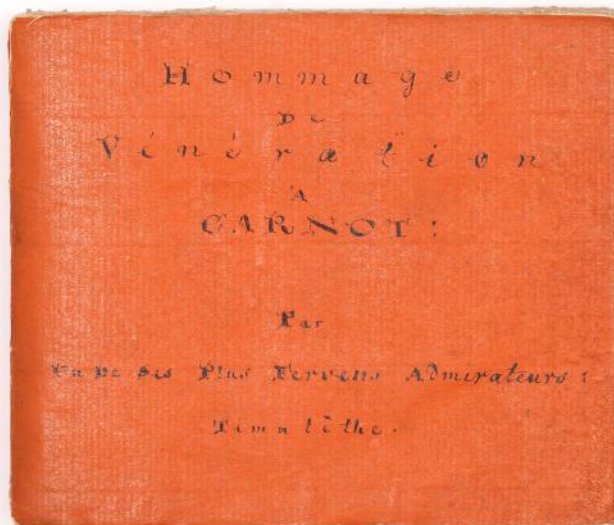 Hommage
De
Vénération
A
CARNOT :
Par
Un De Ses Plus Fervens Admirateurs :